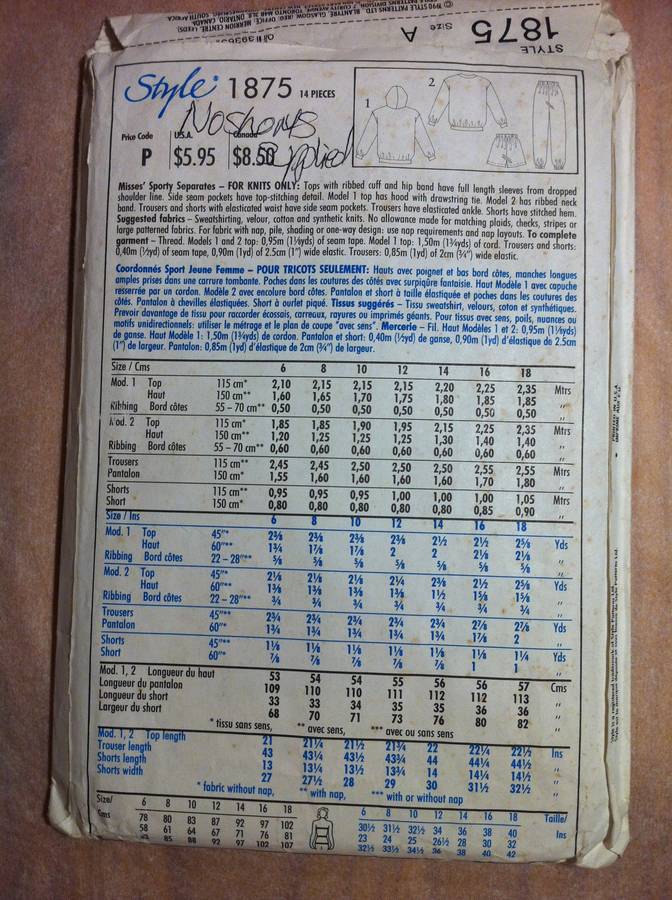 STYLE
1875
Size A
Style 1875 14 PIECES
No shorts
supplied
Price Code U.S.A. Canada
P $5.95 $8.50
1
2
Misses' Sporty Separates – FOR KNITS ONLY: Tops with ribbed cuff and hip band have full length sleeves from dropped
shoulder line. Side seam pockets have top-stitching detail. Model 1 top has hood with drawstring tie. Model 2 has ribbed neck
band. Trousers and shorts with elasticated waist have side seam pockets. Trousers have elasticated ankle. Shorts have stitched hem.
Suggested fabrics – Sweatshirting, velour, cotton and synthetic knits. No allowance made for matching plaids, checks, stripes or
large patterned fabrics. For fabric with nap, pile, shading or one-way design: use nap requirements and nap layouts. To complete
garment – Thread. Models 1 and 2 top: 0,95m (1⅛yds) of seam tape. Model 1 top: 1,50m (1¾yds) of cord. Trousers and shorts:
0,40m (½yd) of seam tape, 0,90m (1yd) of 2.5cm (1") wide elastic. Trousers: 0,85m (1yd) of 2cm (¾") wide elastic.
Coordonnés Sport Jeune Femme – POUR TRICOTS SEULEMENT: Hauts avec poignet et bas bord côtes, manches longues
amples prises dans une carrure tombante. Poches dans les coutures des côtés avec surpiqûre fantaisie. Haut Modèle 1 avec capuche
resserrée par un cordon. Modèle 2 avec encolure bord côtes. Pantalon et short à taille élastique et poches dans les coutures des
côtés. Pantalon à chevilles élastiques. Short à ourlet piqué. Tissus suggérés – Tissu sweatshirt, velours, coton et synthétiques.
Prevoir davantage de tissu pour raccorder écossais, carreaux, rayures ou imprimés géants. Pour tissus avec sens, poils, nuances ou
motifs unidirectionnels: utiliser le métrage et le plan de coupe "avec sens". Mercerie – Fil. Haut Modèles 1 et 2: 0,95m (1⅛yds)
de ganse. Haut Modèle 1: 1,50m (1¾yds) de cordon. Pantalon et short: 0,40m (½yd) de ganse, 0,90m (1yd) d'élastique de 2.5cm
(1") de largeur. Pantalon: 0,85m (1yd) d'élastique de 2cm (¾") de largeur.
Size / Cms 6 8 10 12 14 16 18
Mod. 1 Top 115 cm* 2,10 2,15 2,15 2,15 2,20 2,25 2,35 Mtrs
Haut 150 cm** 1,60 1,65 1,70 1,75 1,80 1,85 1,85 "
Ribbing Bord côtes 55 – 70 cm** 0,50 0,50 0,50 0,50 0,50 0,50 0,50 "
Mod. 2 Top 115 cm* 1,85 1,85 1,90 1,95 2,15 2,25 2,35 Mtrs
Haut 150 cm** 1,20 1,25 1,25 1,25 1,30 1,40 1,40 "
Ribbing Bord côtes 55 – 70 cm** 0,60 0,60 0,60 0,60 0,60 0,60 0,60 "
Trousers 115 cm** 2,45 2,45 2,50 2,50 2,50 2,55 2,55 Mtrs
Pantalon 150 cm* 1,55 1,60 1,60 1,60 1,60 1,70 1,80 "
Shorts 115 cm** 0,95 0,95 0,95 1,00 1,00 1,00 1,05 Mtrs
Short 150 cm* 0,80 0,80 0,80 0,80 0,80 0,85 0,90 "
Size / Ins 6 8 10 12 14 16 18
Mod. 1 Top 45"* 2⅜ 2⅜ 2⅜ 2⅜ 2½ 2½ 2⅝ Yds
Haut 60"** 1¾ 1⅞ 1⅞ 2 2 2⅛ 2⅛ "
Ribbing Bord côtes 22 – 28"** ⅝ ⅝ ⅝ ⅝ ⅝ ⅝ ⅝ "
Mod. 2 Top 45"* 2⅛ 2⅛ 2⅛ 2¼ 2⅜ 2½ 2⅝ Yds
Haut 60"** 1⅜ 1⅜ 1⅜ 1⅜ 1½ 1⅝ 1⅝ "
Ribbing Bord côtes 22 – 28"** ¾ ¾ ¾ ¾ ¾ ¾ ¾ "
Trousers 45"** 2¾ 2¾ 2¾ 2¾ 2¾ 2⅞ 2⅞ Yds
Pantalon 60"* 1¾ 1¾ 1¾ 1¾ 1¾ 1⅞ 2 "
Shorts 45"** 1⅛ 1⅛ 1⅛ 1⅛ 1⅛ 1⅛ 1¼ Yds
Short 60"* ⅞ ⅞ ⅞ ⅞ ⅞ 1 1 "
Mod. 1, 2 Longueur du haut 53 54 54 55 56 56 57 Cms
Longueur du pantalon 109 110 110 111 112 112 113 "
Longueur du short 33 33 34 35 35 36 36 "
Largeur du short 68 70 71 73 76 80 82 "
* tissu sans sens, ** avec sens, *** avec ou sans sens
Mod. 1, 2 Top length 21 21¼ 21½ 21¾ 22 22¼ 22½ Ins
Trouser length 43 43¼ 43½ 43¾ 44 44¼ 44½ "
Shorts length 13 13¼ 13½ 13¾ 14 14¼ 14½ "
Shorts width 27 27½ 28 29 30 31½ 32½ "
* fabric without nap, ** with nap, *** with or without nap
Size/ 6 8 10 12 14 16 18 6 8 10 12 14 16 18 Taille/
Cms 78 80 83 87 92 97 102 30½ 31½ 32½ 34 36 38 40 Ins
58 61 64 67 71 76 81 23 24 25 26½ 28 30 32
85 88 92 97 102 107 32½ 33½ 34½ 36 38 40 42
PRINTED IN U.S.A.